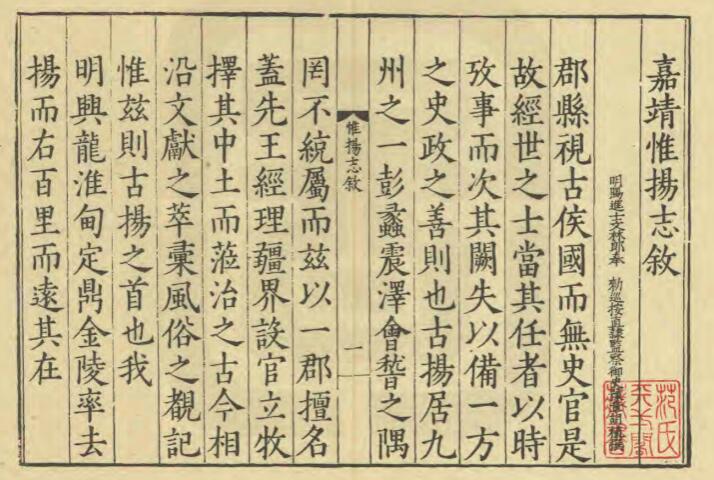 嘉靖惟揚志敘
明賜進士文林郎奉 勑巡按直隸監察御史
范氏
天一閣
郡縣視古侯國而無史官是
故經世之士當其任者以時
攷事而次其闕失以備一方
之史政之善則也古揚居九
州之一彭蠡震澤會稽之隅
惟揚志敘
一
罔不統屬而茲以一郡擅名
蓋先王經理疆界設官立牧
擇其中土而蒞治之古今相
沿文獻之萃彙風俗之覩記
惟茲則古揚之首也我
明興龍淮甸定鼎金陵率去
揚而右百里而遠其在